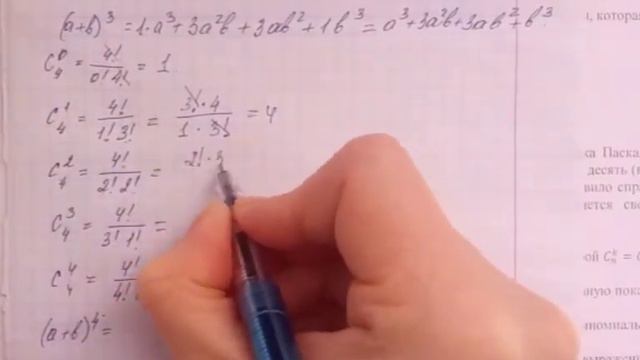 (a+b)³ = 1·a³+3a²b+3ab²+1b³ = a³+3a²b+3ab²+b³
C₄⁰ = 4!/0!4! = 1
C₄¹ = 4!/1!3! = 3!·4/1·3! = 4
C₄² = 4!/2!2! = 2!·3
C₄³ = 4!/3!1! =
C₄⁴ = 4!/4!
(a+b)⁴ =
, которая
ка Паска
десять (
вило спр
ется сво
ой Cₙᵏ = C
ную пока
номиаль
выражени